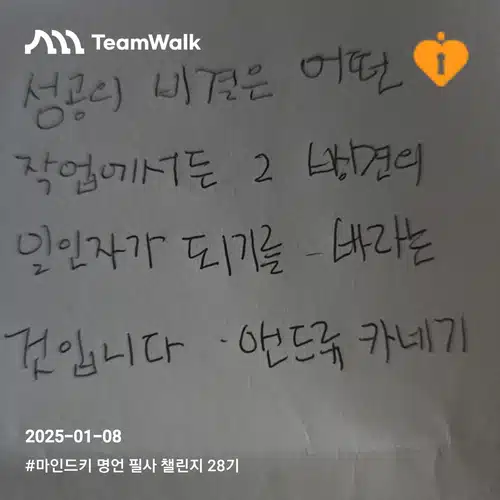 TeamWalk
성공의 비결은 어떤
작업에서든 2 방견의
일인자가 되기를 - 바라는
것입니다 · 앤드류 카네기
2025-01-08
#마인드키 명언 필사 챌린지 28기